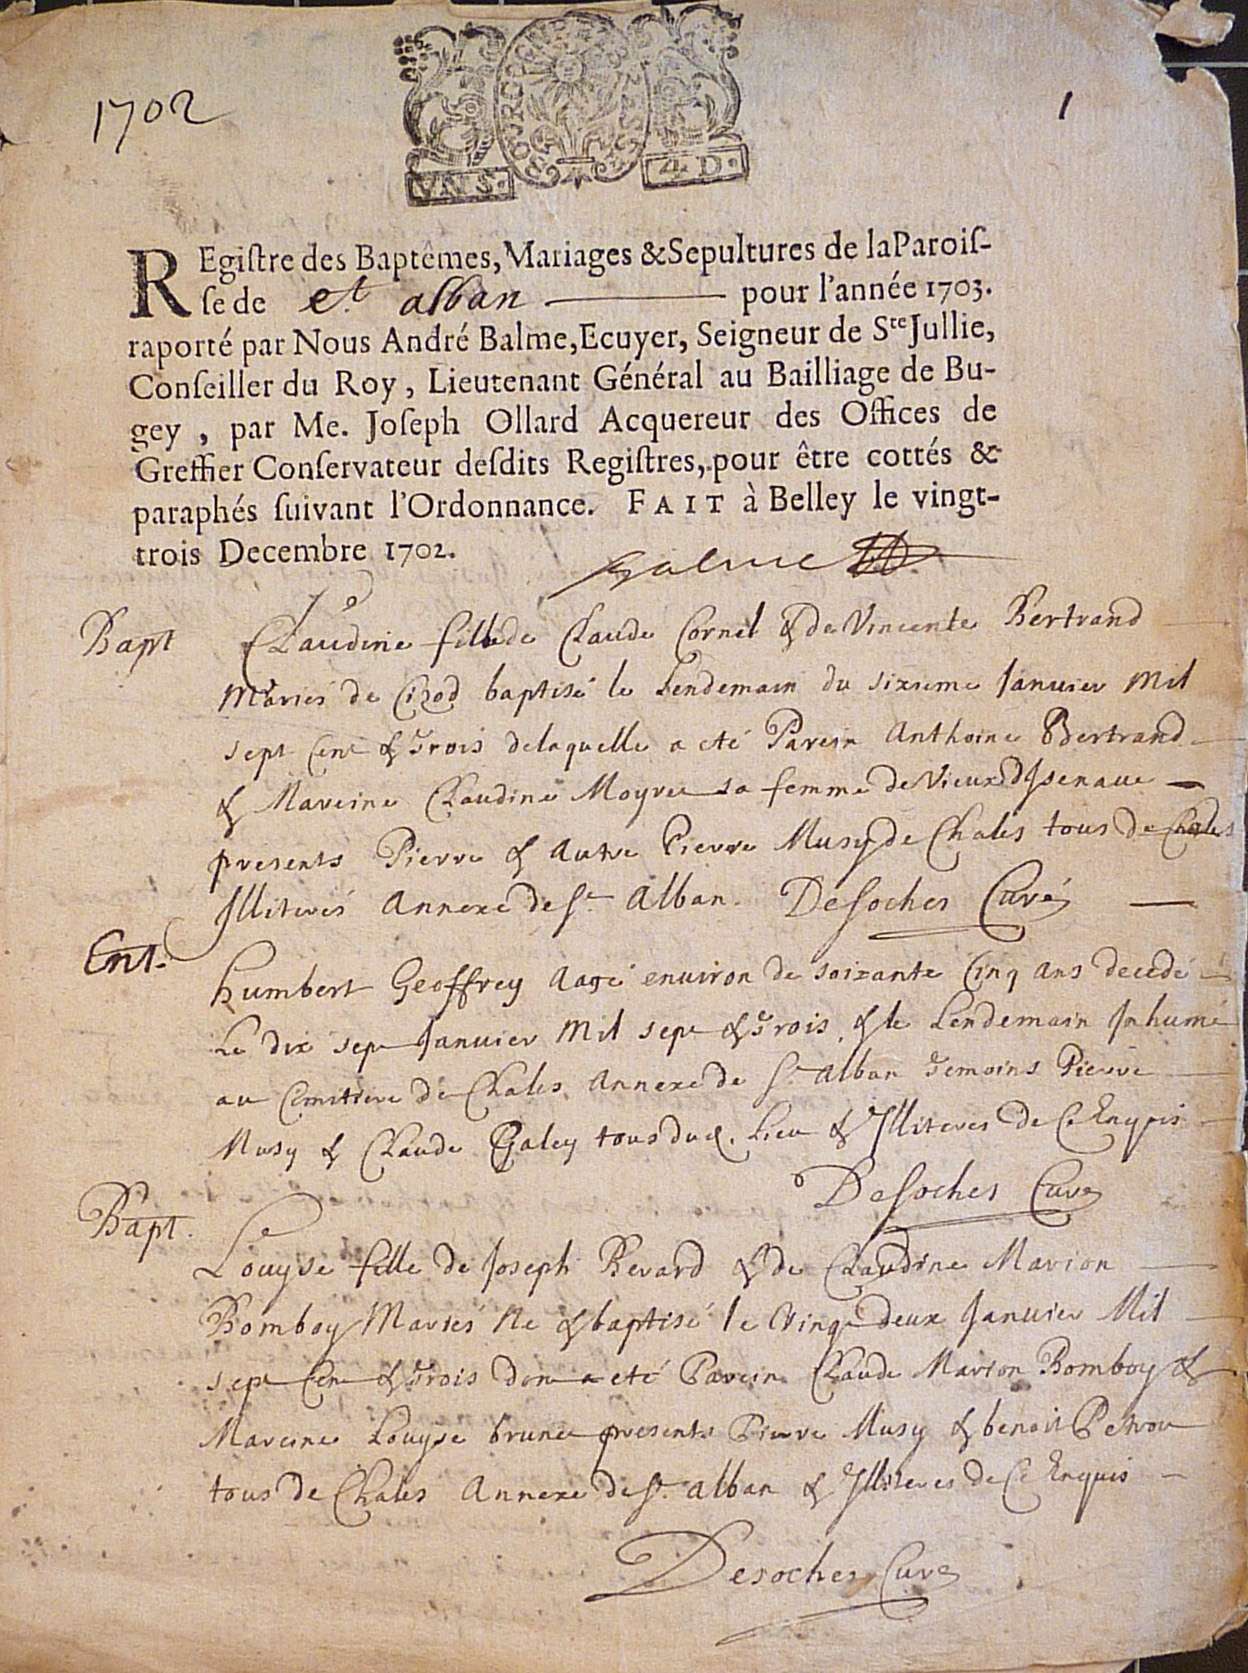 1702
1
BOURG
UN S. 4 D.
REgiſtre des Baptêmes, Mariages & Sepultures de la Paroiſ-
ſe de St. alban pour l'année 1703.
raporté par Nous André Balme, Ecuyer, Seigneur de Ste Jullie,
Conſeiller du Roy, Lieutenant Général au Bailliage de Bu-
gey, par Me. Joſeph Ollard Acquereur des Offices de
Greffier Conſervateur deſdits Regiſtres, pour être cottés &
paraphés ſuivant l'Ordonnance. FAIT à Belley le vingt-
trois Decembre 1702.
Balme
Bapt Claudine fille de Claude Cornet & de Vincente Bertrand
Mariés de baptisé le Lendemain du sixieme Janvier Mil
sept Cent & Trois delaquelle a eté Parein Anthoine Bertrand
& Mareine Claudine Moyret sa femme de Vieux d'Jsenave
presents Pierre & Autre Pierre Musy de Chales tous de Chales
Jlliterés Annexe de St. Alban. Desoches Curé
Ent. humbert Geoffrey Aagé environ de soixante Cinq Ans decedé
Le dix sept Janvier Mil sept & Trois & le Lendemain Jnhumé
au Cemitiere de Chales Annexe de St. Alban Temoins Pierre
Musy & Claude tous dud. Lieu & Jlliteres de Ce Enquis
Desoches Curé
Bapt. Louyse fille de Joseph Revard & de Claudine Marion
Bomboy Mariés Né & baptisé le Vingt deux Janvier Mil
sept Cent & Trois dont a eté Parein Claude Marion Bomboy &
Mareine Louyse brunet presents Pierre Musy & benoit
tous de Chales Annexe de St. alban & Jlliteres de Ce Enquis
Desoches Curé